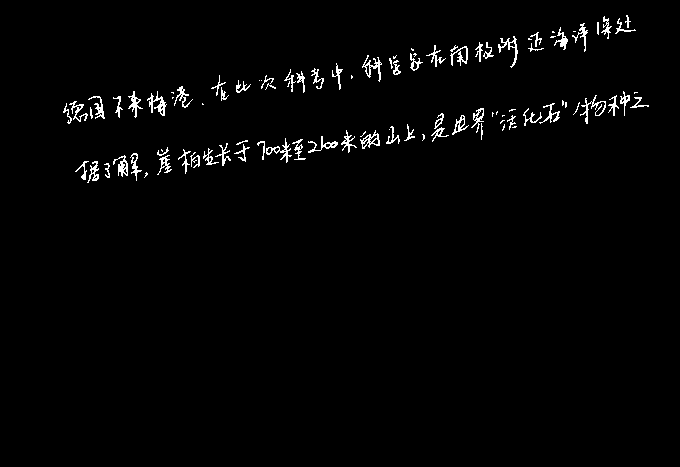 德国不来梅港。在此次科考中，科学家在南极附近海洋深处
据了解，崖柏生长于700米至2100米的山上，是世界“活化石”物种之